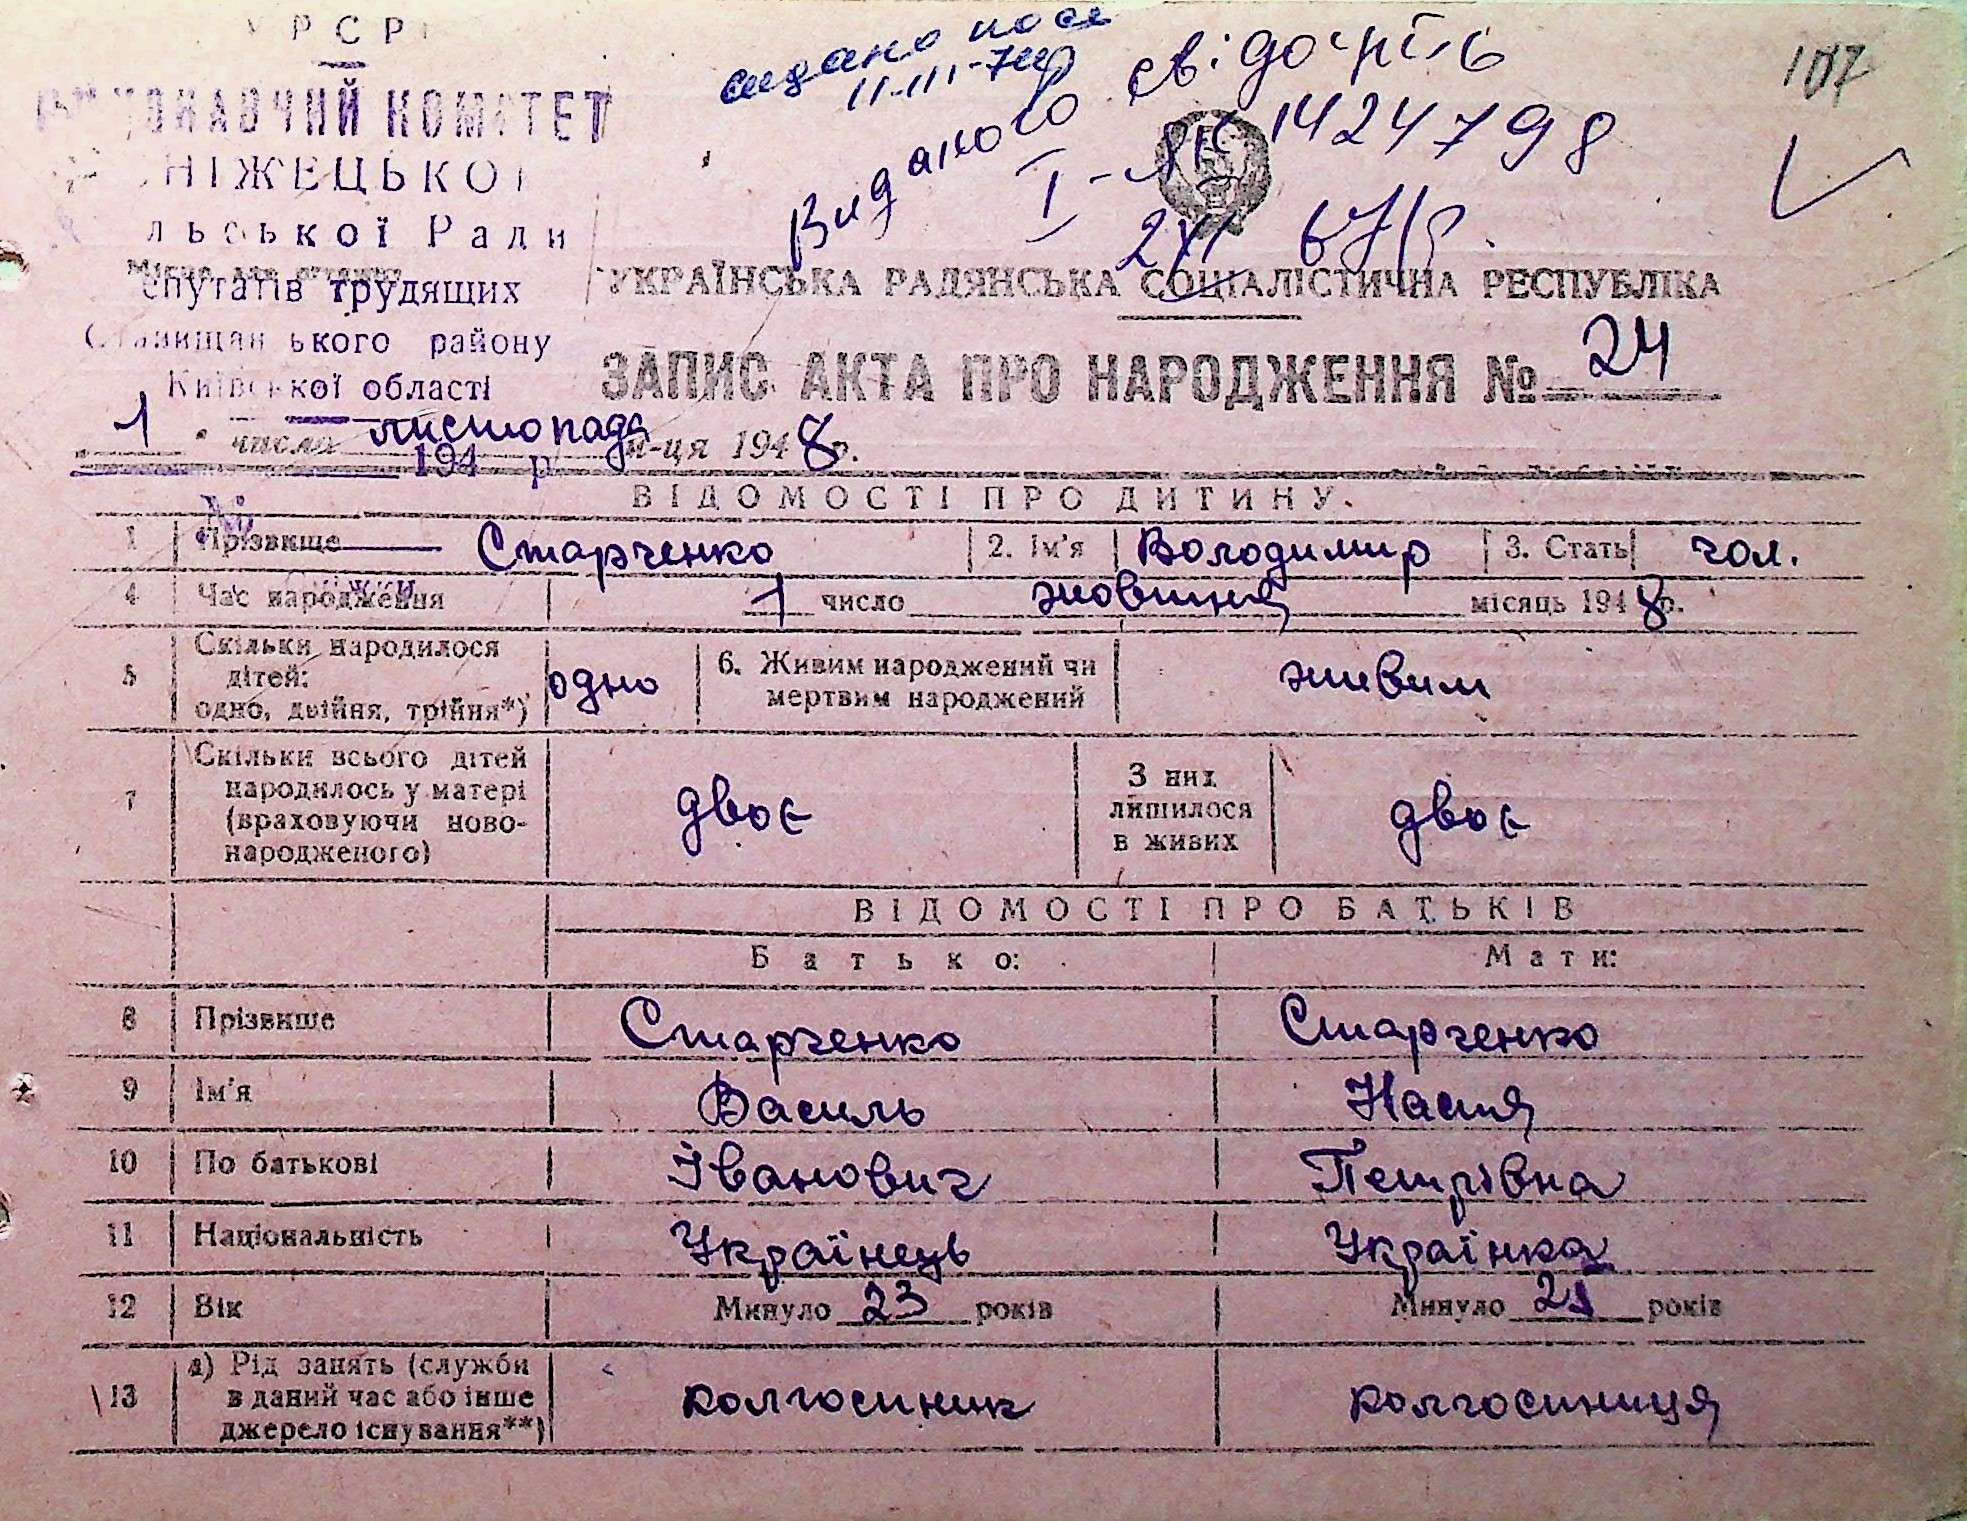 УРСР
ВИКОНАВЧИЙ КОМІТЕТ
СНІЖЕЦЬКОЇ
Сільської Ради
депутатів трудящих
Ставищанського району
Київської області
194 р
видано
11-III-74р
Видано свідоцтво
I-
1424798
2 XI 67р.
107
УКРАЇНСЬКА РАДЯНСЬКА СОЦІАЛІСТИЧНА РЕСПУБЛІКА
ЗАПИС АКТА ПРО НАРОДЖЕННЯ № 24
1 числа листопада м-ця 1948 р.
ВІДОМОСТІ ПРО ДИТИНУ.
1 Прізвище Старченко 2. Ім'я Володимир 3. Стать чол.
4 Час народження 1 число жовтня місяць 1948 р.
5 Скільки народилося дітей: одно, двійня, трійня*) одно 6. Живим народжений чи мертвим народжений живим
7 Скільки всього дітей народилось у матері (враховуючи ново-народженого) двоє З них лишилося в живих двоє
ВІДОМОСТІ ПРО БАТЬКІВ
Батько: Мати:
8 Прізвище Старченко Старченко
9 Ім'я Василь Настя
10 По батькові Іванович Петрівна
11 Національність Українець Українка
12 Вік Минуло 23 років Минуло 21 років
13 а) Рід занять (служби в даний час або інше джерело існування**) колгоспник колгоспниця